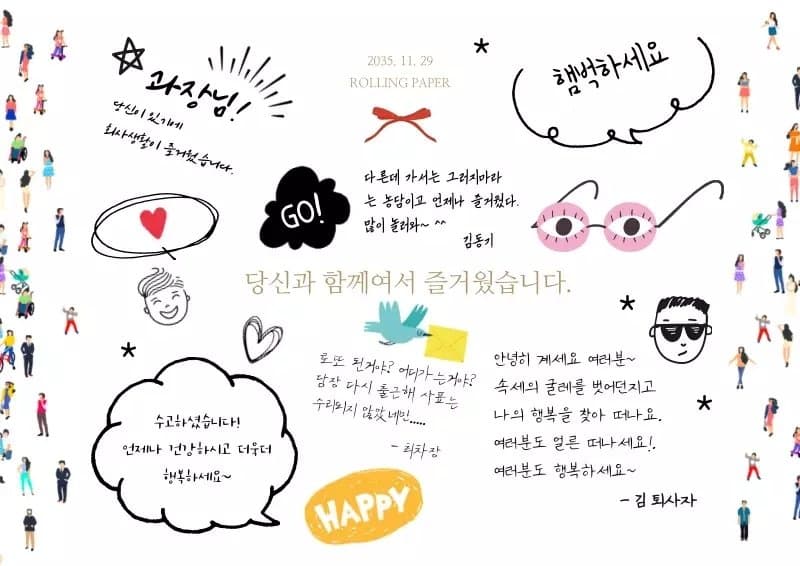 2035. 11. 29
ROLLING PAPER
과장님!
당신이 있기에
회사생활이 즐거웠습니다.
햄벅하세요
GO!
다른데 가서는 그러지마라
는 농담이고 언제나 즐거웠다.
많이 놀러와~ ^^
김동기
당신과 함께여서 즐거웠습니다.
로또 된거야? 어디가는거야?
당장 다시 출근해 사표는
수리되지 않았네만.....
- 최차장
안녕히 계세요 여러분~
속세의 굴레를 벗어던지고
나의 행복을 찾아 떠나요.
여러분도 얼른 떠나세요!.
여러분도 행복하세요~
- 김 퇴사자
수고하셨습니다!
언제나 건강하시고 더욱더
행복하세요~
HAPPY